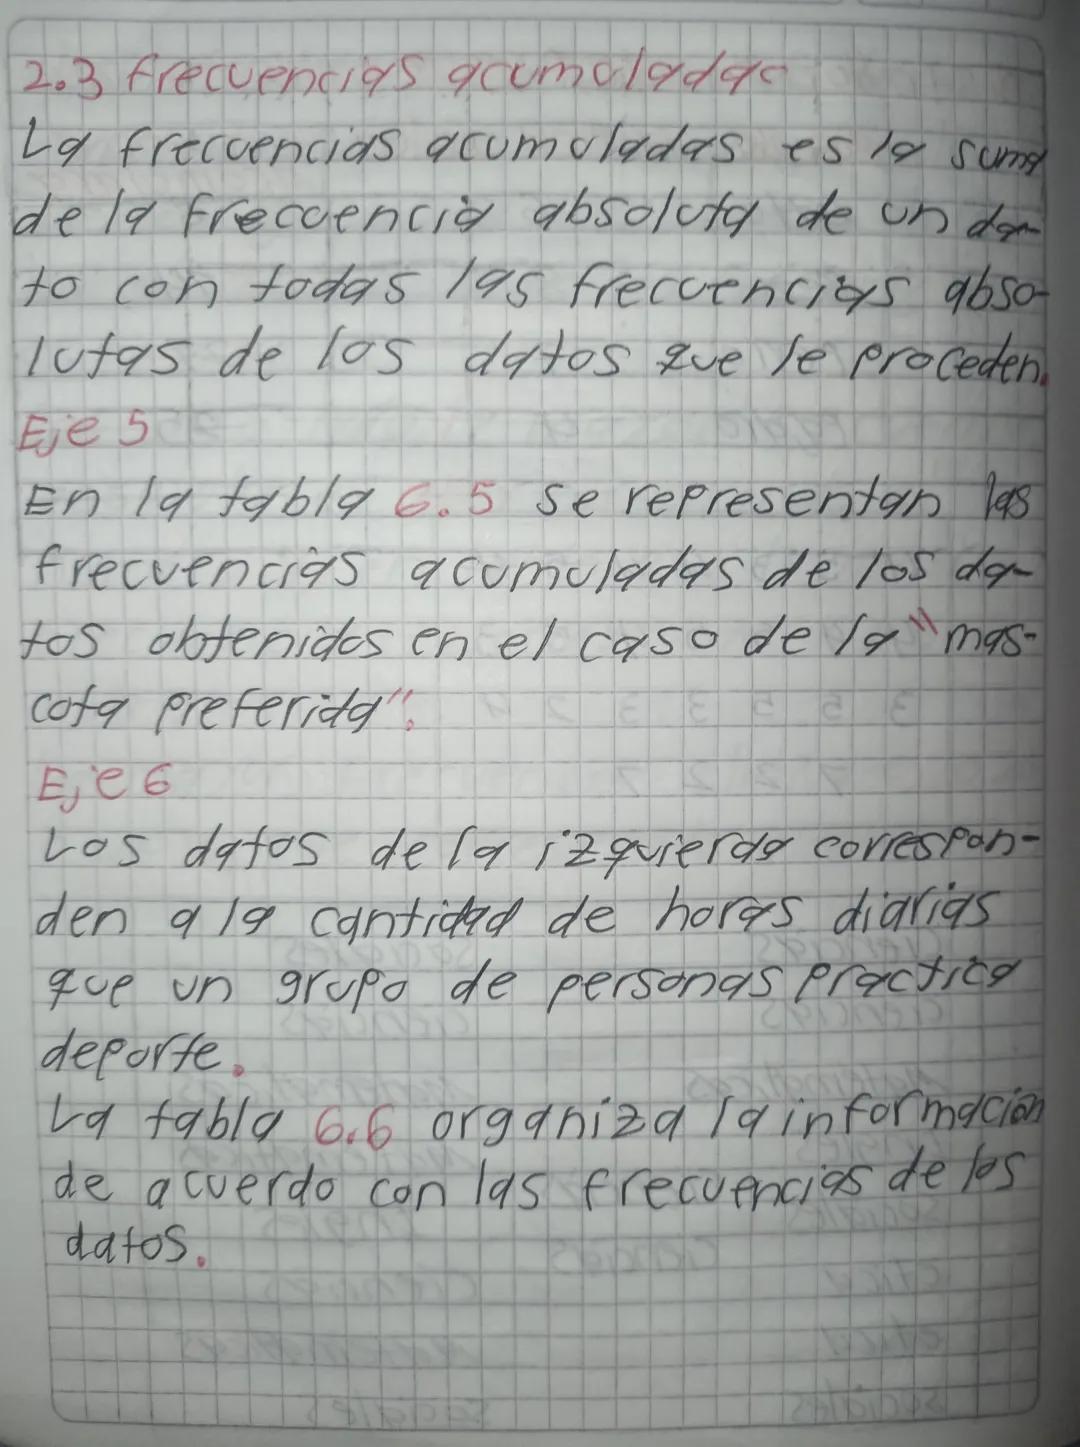 2.3 frecuencias acumuladas
La frecuencias acumuladas es la suma
de la frecuencia absoluta de un da-
to con todas las frecuencias abso-
lutas de los datos que le proceden.
Eje 5
En la tabla 6.5 se representan las
frecuencias acumuladas de los da-
tos obtenidos en el caso de la "mas-
cota preferida".
Eje 6
Los datos de la izquierda correspon-
den a la cantidad de horas diarias
que un grupo de personas practica
deporte.
La tabla 6.6 organiza la información
de acuerdo con las frecuencias de los
datos.